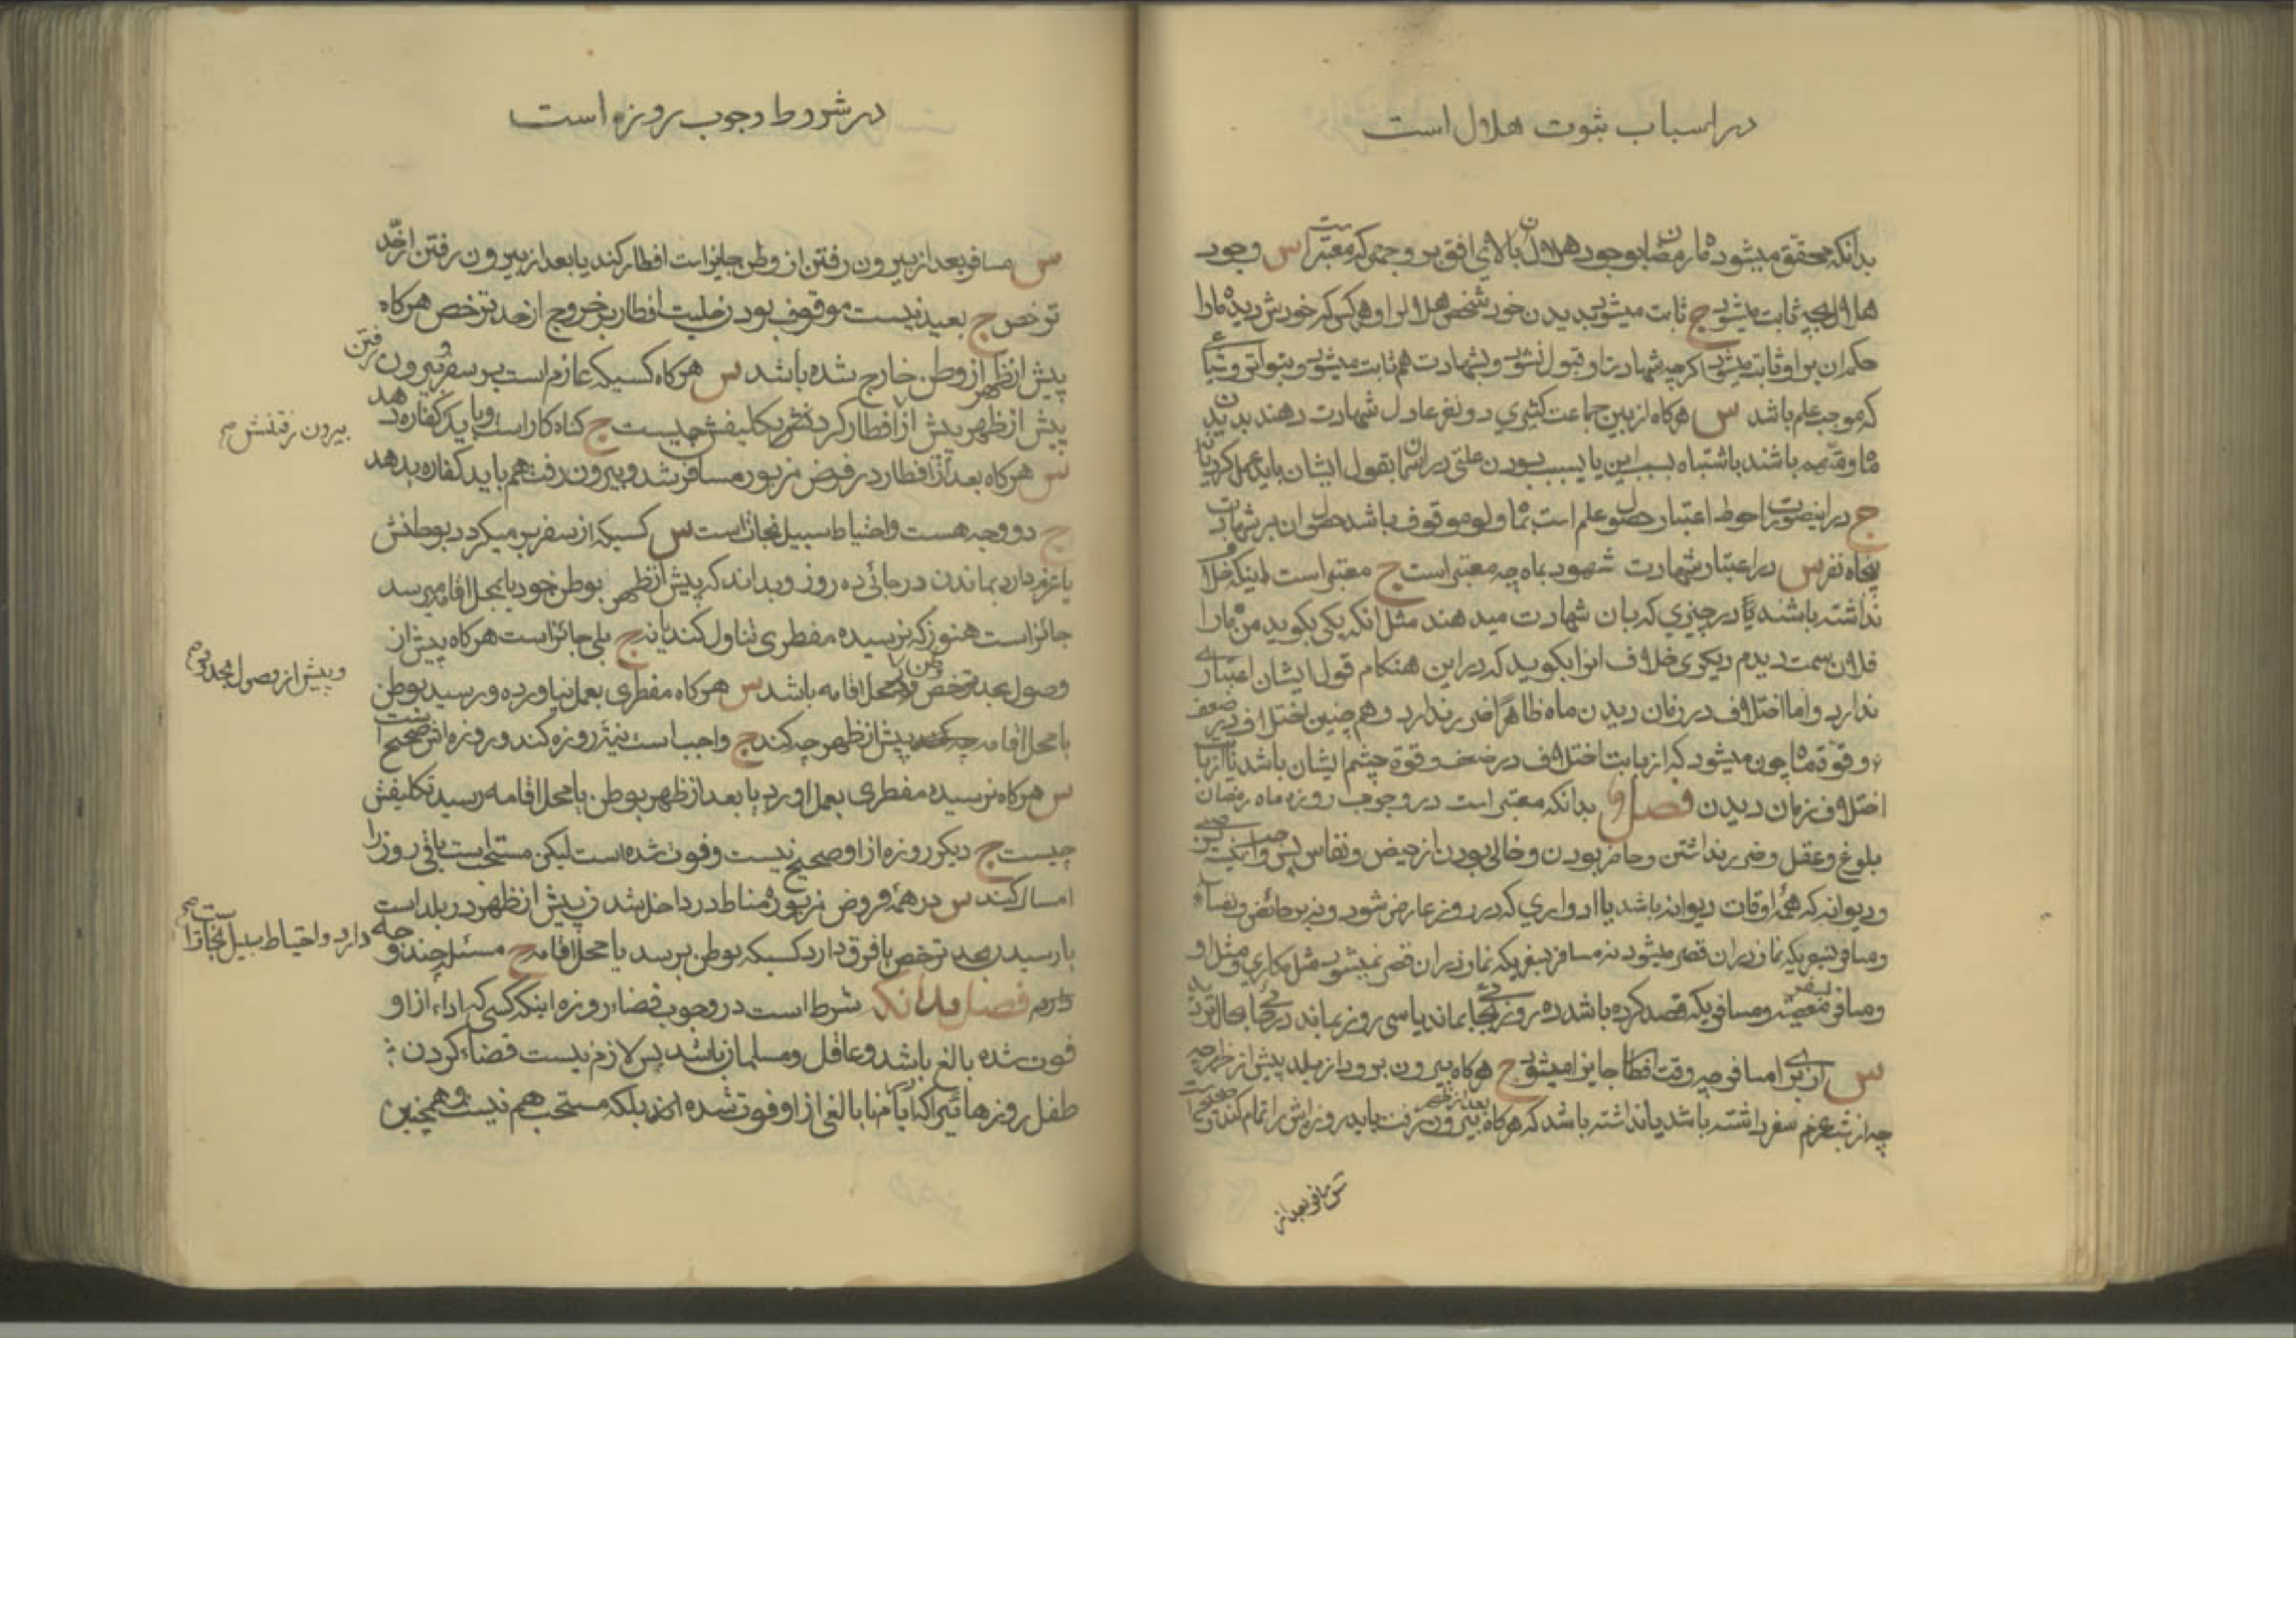 در اسباب ثبوت هلال است
بدانکه محقق میشود ماه رمضان بوجود هلال بالای افق بر وجهی که معتبر است س وجود
هلال بچه ثابت میشود ج ثابت میشود بدیدن خود شخص هلال را و هر کس که خودش دیده ماه را
حکم ان بر او ثابت میشود اکرچه شهادت او قبول نشود و بشهادت هم ثابت میشود و بتواتر و شیاعی
که موجب علم باشد س هرکاه از بین جماعت کثیری دو نفر عادل شهادت دهند بدیدن
ماه و متهم باشند باشتباه بسبب این یا بسبب بودن علتی در اسمان بقول ایشان باید عمل کرد یا نه
ج در اینصورت احوط اعتبار حصول علم است بماه ولو موقوف باشد حصول ان بر شهادت
پنجاه نفر س در اعتبار شهادت شهود بماه چه معتبر است ج معتبر است اینکه خلاف
نداشته باشند در چیزی که بان شهادت میدهند مثل انکه یکی بکوید من ماه را
فلان سمت دیدم دیکری خلاف انرا بکوید که در این هنکام قول ایشان اعتباری
ندارد و اما اختلاف در زمان دیدن ماه ظاهرا ضرر ندارد و هم چنین اختلاف در ضعف
و قوة ماه چون میشود که از بابت اختلاف در ضعف و قوة چشم ایشان باشد یا از بابت
اختلاف زمان دیدن فصل بدانکه معتبر است در وجوب روزه ماه رمضان
بلوغ و عقل و ضرر نداشتن و حاضر بودن و خالی بودن از حیض و نفاس پس واجب نیست بر صبی
و دیوانه که همه اوقات دیوانه باشد یا ادواری که در روز عارض شود و نه بر حائض و نفساء
و مسافر بسفریکه نماز در ان قصر میشود نه مسافر بسفریکه نماز در ان قصر نمیشود مثل مکاری و مثل او
و مسافر بسفر معصیة و مسافریکه قصد کرده باشد ده روز بجائی بماند یا سی روز بماند در جائی بحال تردید
س از برای مسافر چه وقت افطار جایز میشود ج هرکاه بیرون برود از بلد پیش از ظهر چه
چه از شب عزم سفر داشته باشد یا نداشته باشد که هرکاه بعد از ظهر بیرون رفت باید روزه اش را تمام کند و صحیح است
س مسافر بعد از
در شروط وجوب روزه است
س مسافر بعد از بیرون رفتن از وطن جایز است افطار کند یا بعد از بیرون رفتن از حد
ترخص ج بعید نیست موقوف بودن حلیت افطار بر خروج از حد ترخص هرکاه
پیش از ظهر از وطن خارج شده باشد س هرکاه کسیکه عازم است بر سفر و بیرون رفتن
پیش از ظهر پیش از افطار کرد تکلیفش چیست ج کناه کار است و باید کفاره دهد
بیرون رفتنش صح
س هرکاه بعد از افطار در فرض مزبور مسافر شد و بیرون رفت هم باید کفاره بدهد
ج دو وجه هست و احتیاط سبیل نجاتست س کسیکه از سفر بر میکردد بوطنش
یا عزم دارد بماندن در جائی ده روز و بداند که پیش از ظهر بوطن خود یا بمحل اقامه میرسد
جائز است هنوز که نرسیده مفطری تناول کند یا نه ج بلی جائز است هرکاه پیش از
وصول بحد ترخص وطن یا محل اقامه باشد س هرکاه مفطری بعمل نیاورده و رسید بوطن
و پیش از وصول بحد ترخص صح
یا محل اقامه پیش از ظهر چه کند ج واجب است نیة روزه کند و روزه اش صحیح است
س هرکاه نرسیده مفطری بعمل اورد یا بعد از ظهر بوطن یا محل اقامه رسید تکلیفش
چیست ج دیکر روزه از او صحیح نیست و فوت شده است لیکن مستحب است باقی روز را
امساک کند س در همه فروض مزبوره مناط در داخل شدن پیش از ظهر در بلد است
یا رسیدن بحد ترخص یا فرق دارد کسیکه بوطن برسد یا محل اقامه ج مسئله چند وجه
دارد و احتیاط سبیل نجاتست صح
دارد فصل بدانکه شرط است در وجوب قضاء روزه اینکه کسی که اداء از او
فوت شده بالغ باشد و عاقل و مسلمان باشد پس لازم نیست قضاء کردن
طفل روزهائی را که با نابالغی از او فوت شده اند بلکه مستحب هم نیست و همچنین